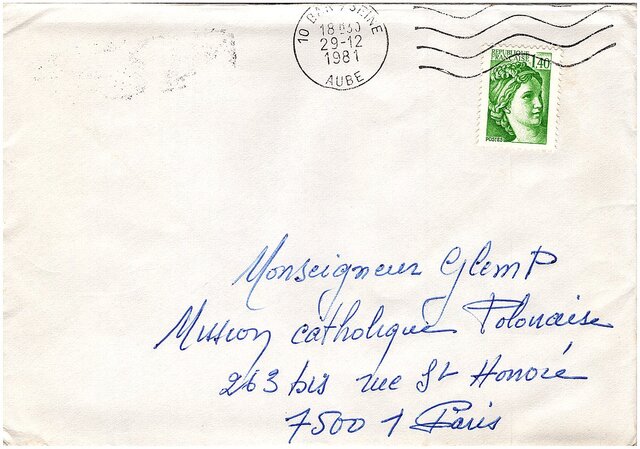 10 BAR S/SEINE
18 H30
29-12
1981
AUBE
REPUBLIQUE
FRANÇAISE
1,40
POSTES
Monseigneur GlemP
Mission catholique Polonaise
263 bis rue St Honoré
75001 Paris